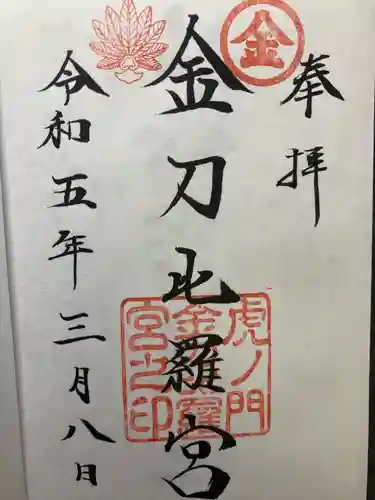 奉拝
金
金刀比羅宮
虎ノ門
金刀比羅
宮之印
令和五年三月八日